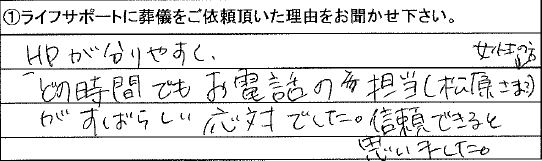 ①ライフサポートに葬儀をご依頼頂いた理由をお聞かせ下さい。
HPが分りやすく、
どの時間でもお電話の女性の方担当(松原さま?)
がすばらしい応対でした。信頼できると
思いました。